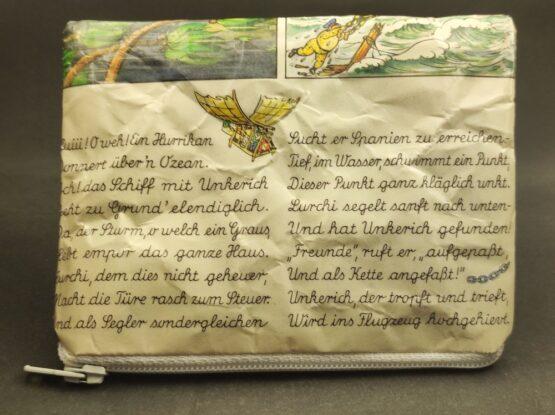 Huiii! O weh! Ein Hurrikan
donnert über'n Ozean.
Ach! das Schiff mit Unkerich
geht zu Grund' elendiglich.
Da, der Sturm, o welch ein Graus,
hebt empor das ganze Haus.
Lurchi, dem dies nicht geheuer,
Macht die Türe rasch zum Steuer.
Und als Segler sondergleichen
Sucht er Spanien zu erreichen-
Tief, im Wasser, schwimmt ein Punkt,
Dieser Punkt ganz kläglich unkt.
Lurchi segelt sanft nach unten-
Und hat Unkerich gefunden!
„Freunde", ruft er, „aufgepaßt,
Und als Kette angefaßt!"
Unkerich, der tropft und trieft,
Wird ins Flugzeug hochgehievt.